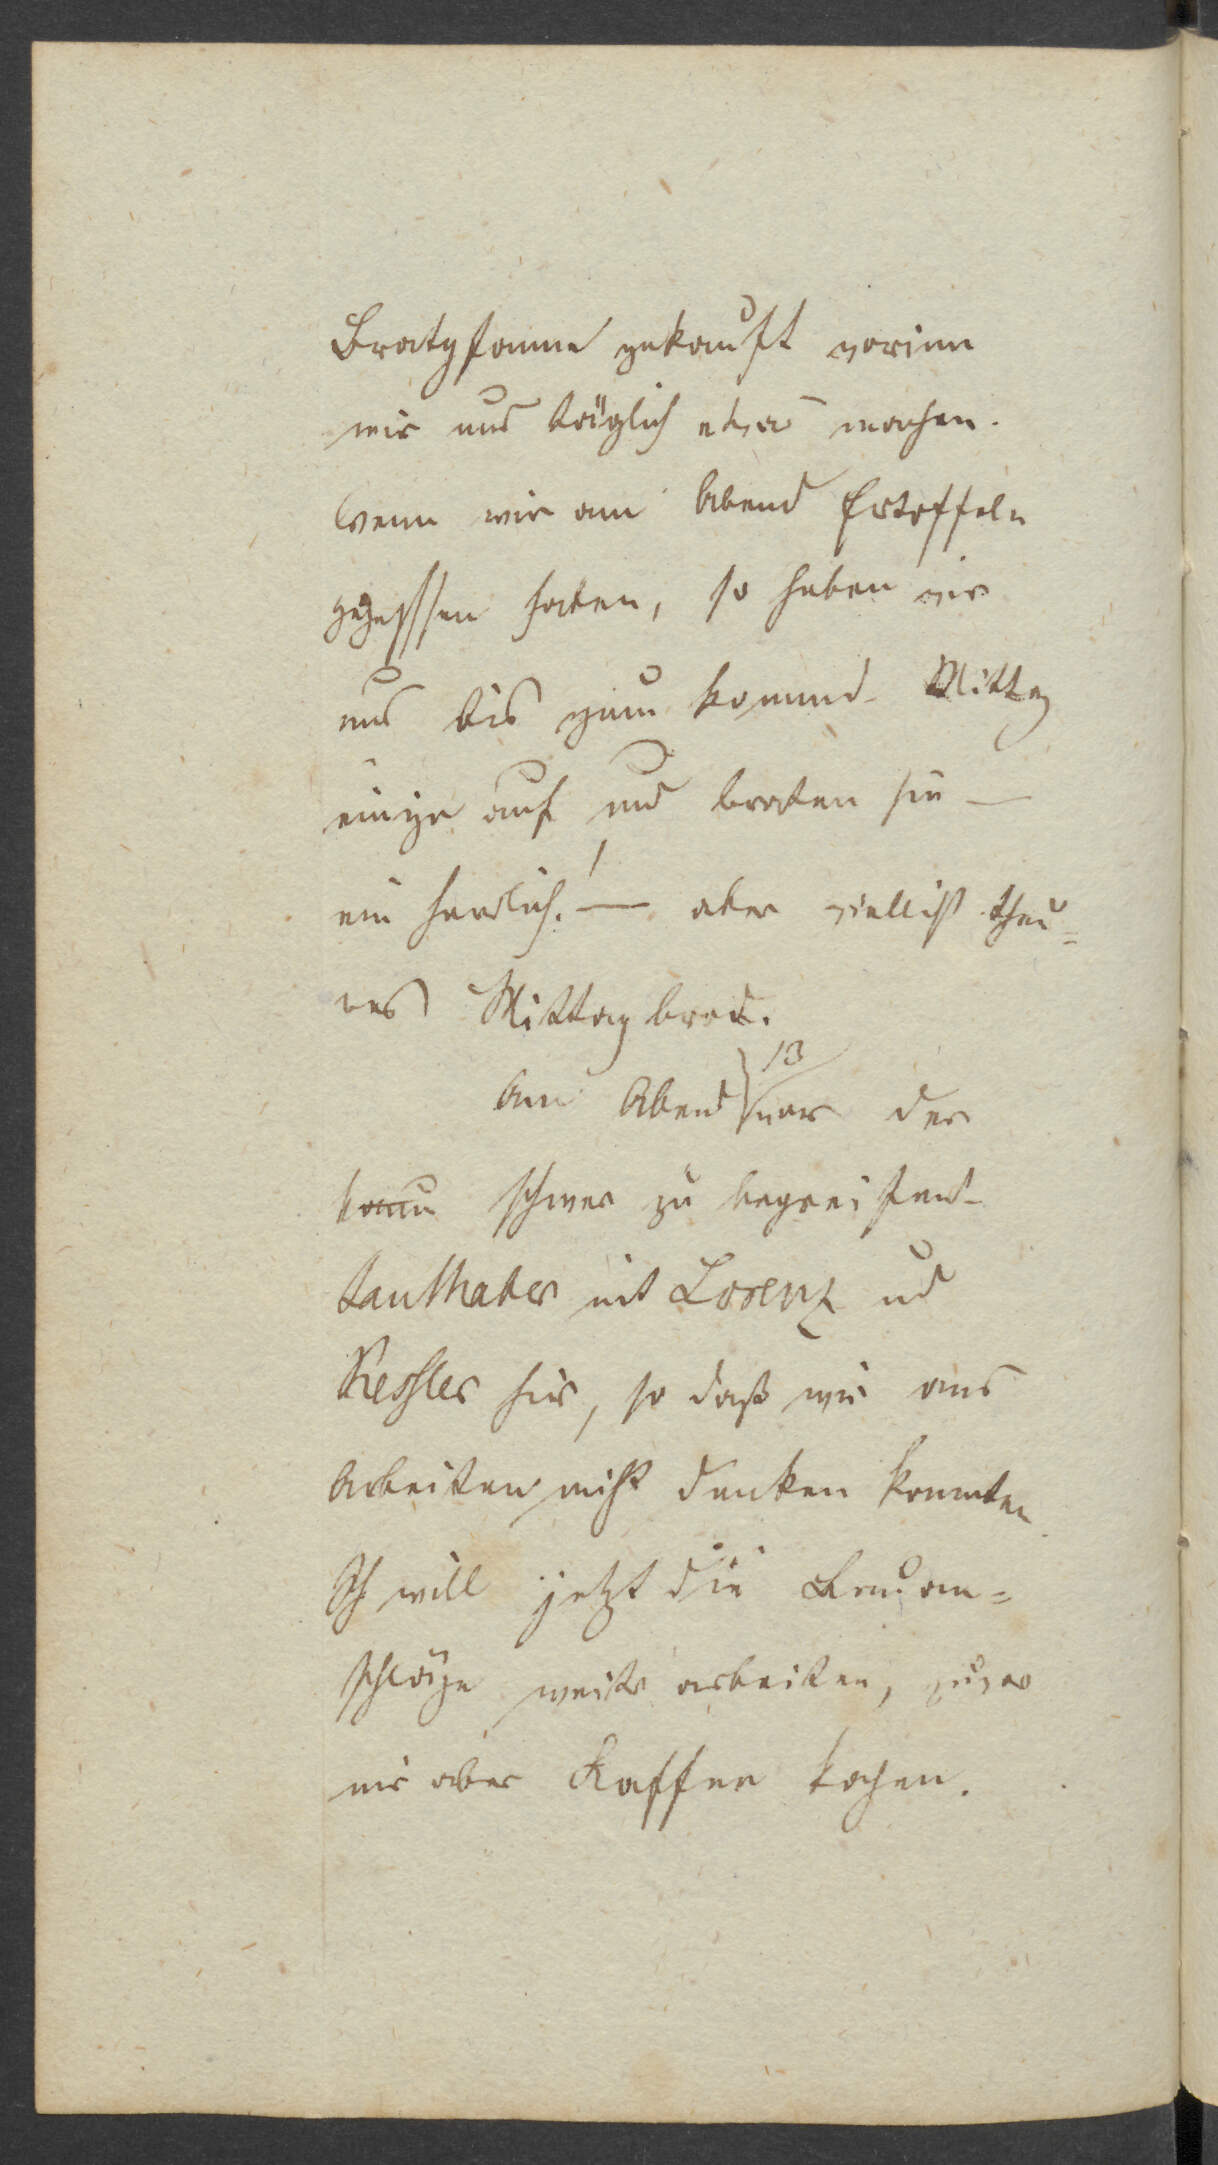 Bratpfanne gekauft worinn
wir uns täglich etwas machen.
Wenn wir am Abend Ertoffeln
gegessen haben, so heben wir
uns bis zum kommd. Mittag
einige auf und braten sie –
ein herrlich! – aber vielleicht theu=
res Mittagbrod.
Am Abend 13 war der
kaum schwer zu begreifend
Lauthaber mit Lorenz und
Kessler hier, so daß wir ans
Arbeiten nicht denken konnten
Ich will jetzt die Bauan=
schläge weiter arbeiten, zuvor
mir aber Kaffee kochen.